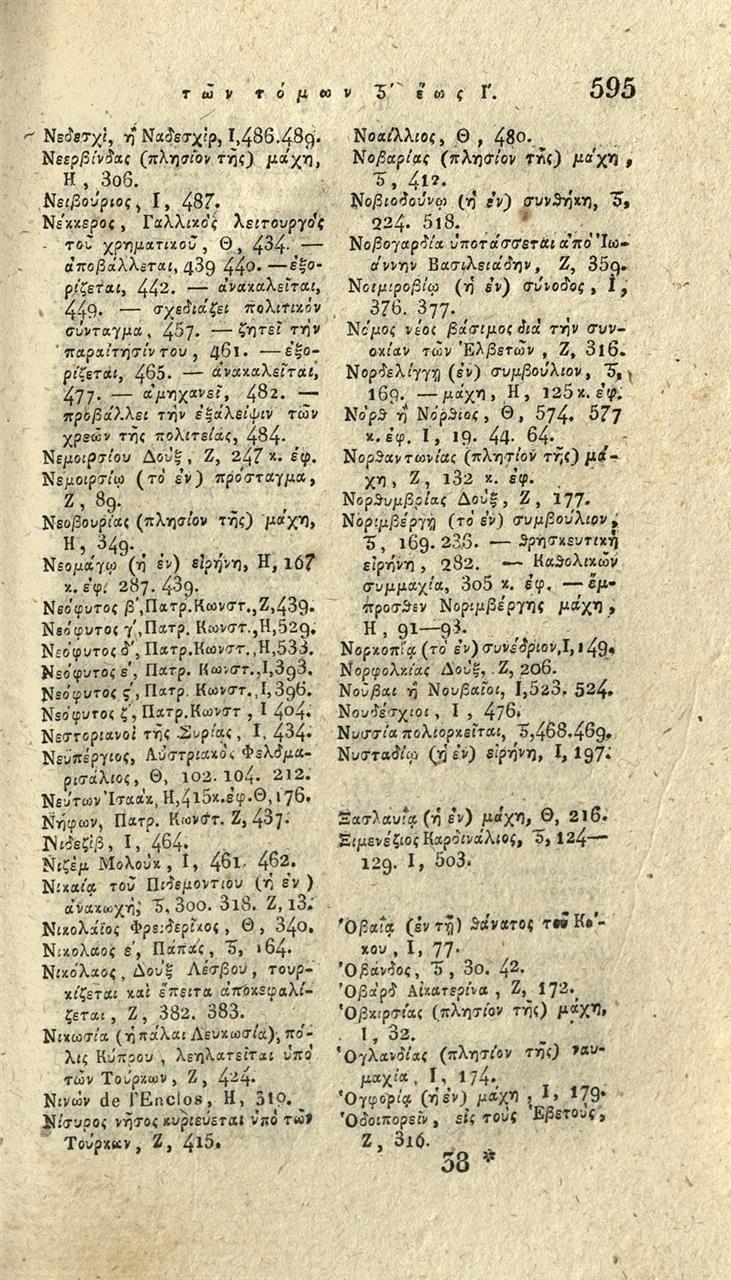 τῶν τόμων Ϛ΄ ἕως Γ. 595
Νεδεσχὶ, ἢ Ναδεσχὶρ, Ι,486.489.
Νεερβίνδας (πλησίον τῆς) μάχη,
Η, 306.
Νειβούριος, Ι, 487.
Νέκκερος, Γαλλικὸς λειτουργὸς
τοῦ χρηματικοῦ, Θ, 434. —
ἀποβάλλεται, 439 440. — ἐξο-
ρίζεται, 442. — ἀνακαλεῖται,
449. — σχεδιάζει πολιτικὸν
σύνταγμα, 457. — ζητεῖ τὴν
παραίτησίν του, 461. — ἐξο-
ρίζεται, 465. — ἀνακαλεῖται,
477. — ἀμηχανεῖ, 482. —
προβάλλει τὴν ἐξάλειψιν τῶν
χρεῶν τῆς πολιτείας, 484.
Νεμοιρσίου Δοὺξ, Ζ, 247 κ. ἐφ.
Νεμοιρσίῳ (τὸ ἐν) πρόσταγμα,
Ζ, 89.
Νεοβουρίας (πλησίον τῆς) μάχη,
Η, 349.
Νεομάγῳ (ἡ ἐν) εἰρήνη, Η, 167
κ. ἐφ. 287. 439.
Νεόφυτος β΄, Πατρ. Κωνστ., Ζ,439.
Νεόφυτος γ΄, Πατρ. Κωνστ., Η,529.
Νεόφυτος δ΄, Πατρ. Κωνστ., Η,533.
Νεόφυτος ε΄, Πατρ. Κωνστ., Ι,393.
Νεόφυτος ϛ΄, Πατρ. Κωνστ., Ι,396.
Νεόφυτος ζ΄, Πατρ. Κωνστ, Ι 404.
Νεστοριανοὶ τῆς Συρίας, Ι, 434.
Νεϋπέργιος, Αὐστριακὸς Φελδμα-
ρισάλιος, Θ, 102. 104. 212.
Νεύτων Ἰσαὰκ, Η,415κ.ἐφ.Θ,176.
Νήφων, Πατρ. Κωνστ. Ζ, 437.
Νιδεζὶβ, Ι, 464.
Νιζὲμ Μολοὺκ, Ι, 461. 462.
Νικαίᾳ τοῦ Πιδεμοντίου (ἡ ἐν)
ἀνακωχὴ, Ϛ, 300. 318. Ζ, 13.
Νικολάϊος Φρειδερῖκος, Θ, 340.
Νικόλαος ε΄, Πάπας, Ϛ, 164.
Νικόλαος, Δοὺξ Λέσβου, τουρ-
κίζεται καὶ ἔπειτα ἀποκεφαλί-
ζεται, Ζ, 382. 383.
Νικωσία (ἡ πάλαι Λευκωσία), πό-
λις Κύπρου, λεηλατεῖται ὑπὸ
τῶν Τούρκων, Ζ, 424.
Νινὼν de l'Enclos, Η, 319.
Νίσυρος νῆσος κυριεύεται ὑπὸ τῶν
Τούρκων, Ζ, 415.
Νοαίλλιος, Θ, 480.
Νοβαρίας (πλησίον τῆς) μάχη,
Ϛ, 412.
Νοβιοδούνῳ (ἡ ἐν) συνθήκη, Ϛ,
224. 518.
Νοβογαρδία ὑποτάσσεται ἀπὸ Ἰω-
άννην Βασιλειάδην, Ζ, 359.
Νοιμιροβίῳ (ἡ ἐν) σύνοδος, Ι,
376. 377.
Νόμος νέος βάσιμος διὰ τὴν συν-
οκίαν τῶν Ἑλβετῶν, Ζ, 316.
Νορδελίγγῃ (ἐν) συμβούλιον, Ϛ,
169. — μάχη, Η, 125 κ. ἐφ.
Νὸρθ ἢ Νόρθιος, Θ, 574. 577
κ. ἐφ. Ι, 19. 44. 64.
Νορθαντωνίας (πλησίον τῆς) μά-
χη, Ζ, 132 κ. ἐφ.
Νορθυμβρίας Δοὺξ, Ζ, 177.
Νοριμβέργῃ (τὸ ἐν) συμβούλιον,
Ϛ, 169. 236. — θρησκευτικὴ
εἰρήνη, 282. — Καθολικῶν
συμμαχία, 305 κ. ἐφ. — ἔμ-
προσθεν Νοριμβέργης μάχη,
Η, 91—93.
Νορκοπίᾳ (τὸ ἐν) συνέδριον, Ι,149.
Νορφολκίας Δοὺξ, Ζ, 206.
Νοῦβαι ἢ Νουβαῖοι, Ι,523. 524.
Νουδέσχιοι, Ι, 476.
Νυσσία πολιορκεῖται, Ϛ,468.469.
Νυσταδίῳ (ἡ ἐν) εἰρήνη, Ι, 197.
Ξασλαυίᾳ (ἡ ἐν) μάχη, Θ, 216.
Ξιμενέζιος Καρδινάλιος, Ϛ, 124—
129. Ι, 503.
Ὀβαΐᾳ (ἐν τῇ) θάνατος τοῦ Κό-
κου, Ι, 77.
Ὀβάνδος, Ϛ, 30. 42.
Ὀβὰρδ Αἰκατερίνα, Ζ, 172.
Ὀβκιρσίας (πλησίον τῆς) μάχη,
Ι, 32.
Ὀγλανδίας (πλησίον τῆς) ναυ-
μαχία, Ι, 174.
Ὀγφορίᾳ (ἡ ἐν) μάχη, Ι, 179.
Ὁδοιπορεῖν, εἰς τοὺς Ἐβετοὺς,
Ζ, 316.
38 *